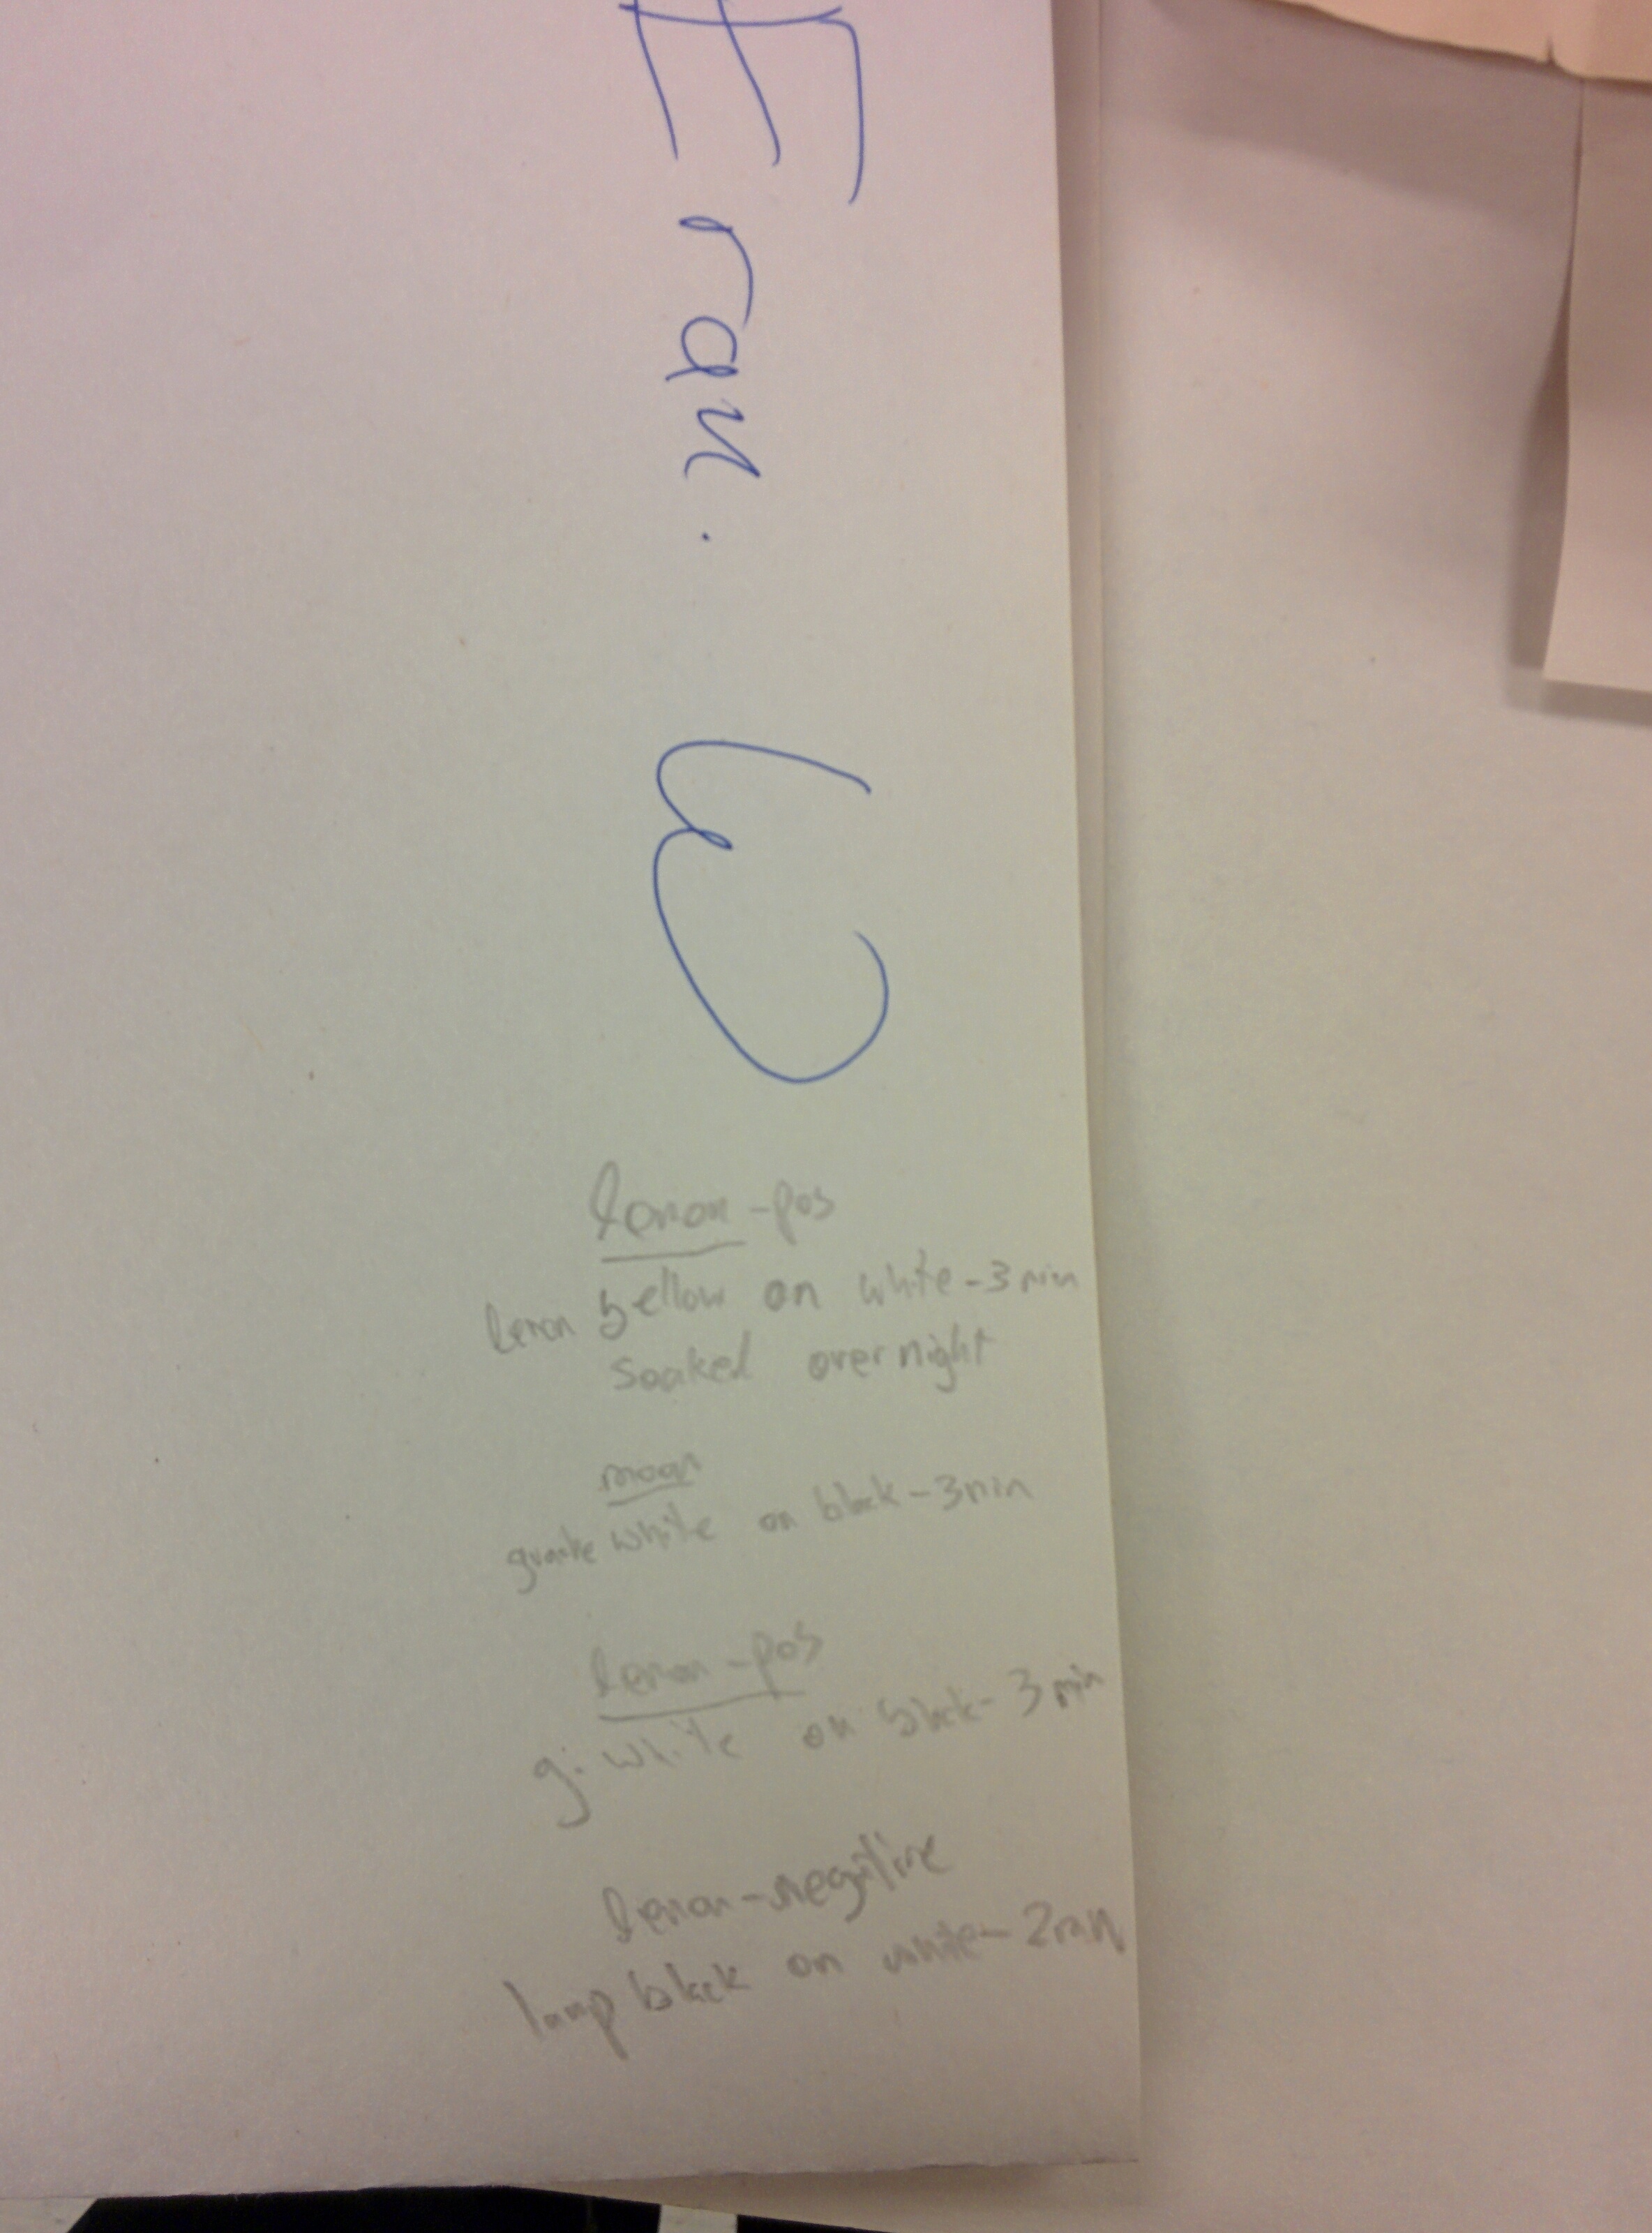 Eran. W
lemon-pos
lemon yellow on white-3 min
soaked overnight
moon
white on black-3min
lemon-pos
g. white on black-3 min
lemon-negitive
lamp black on white-2min